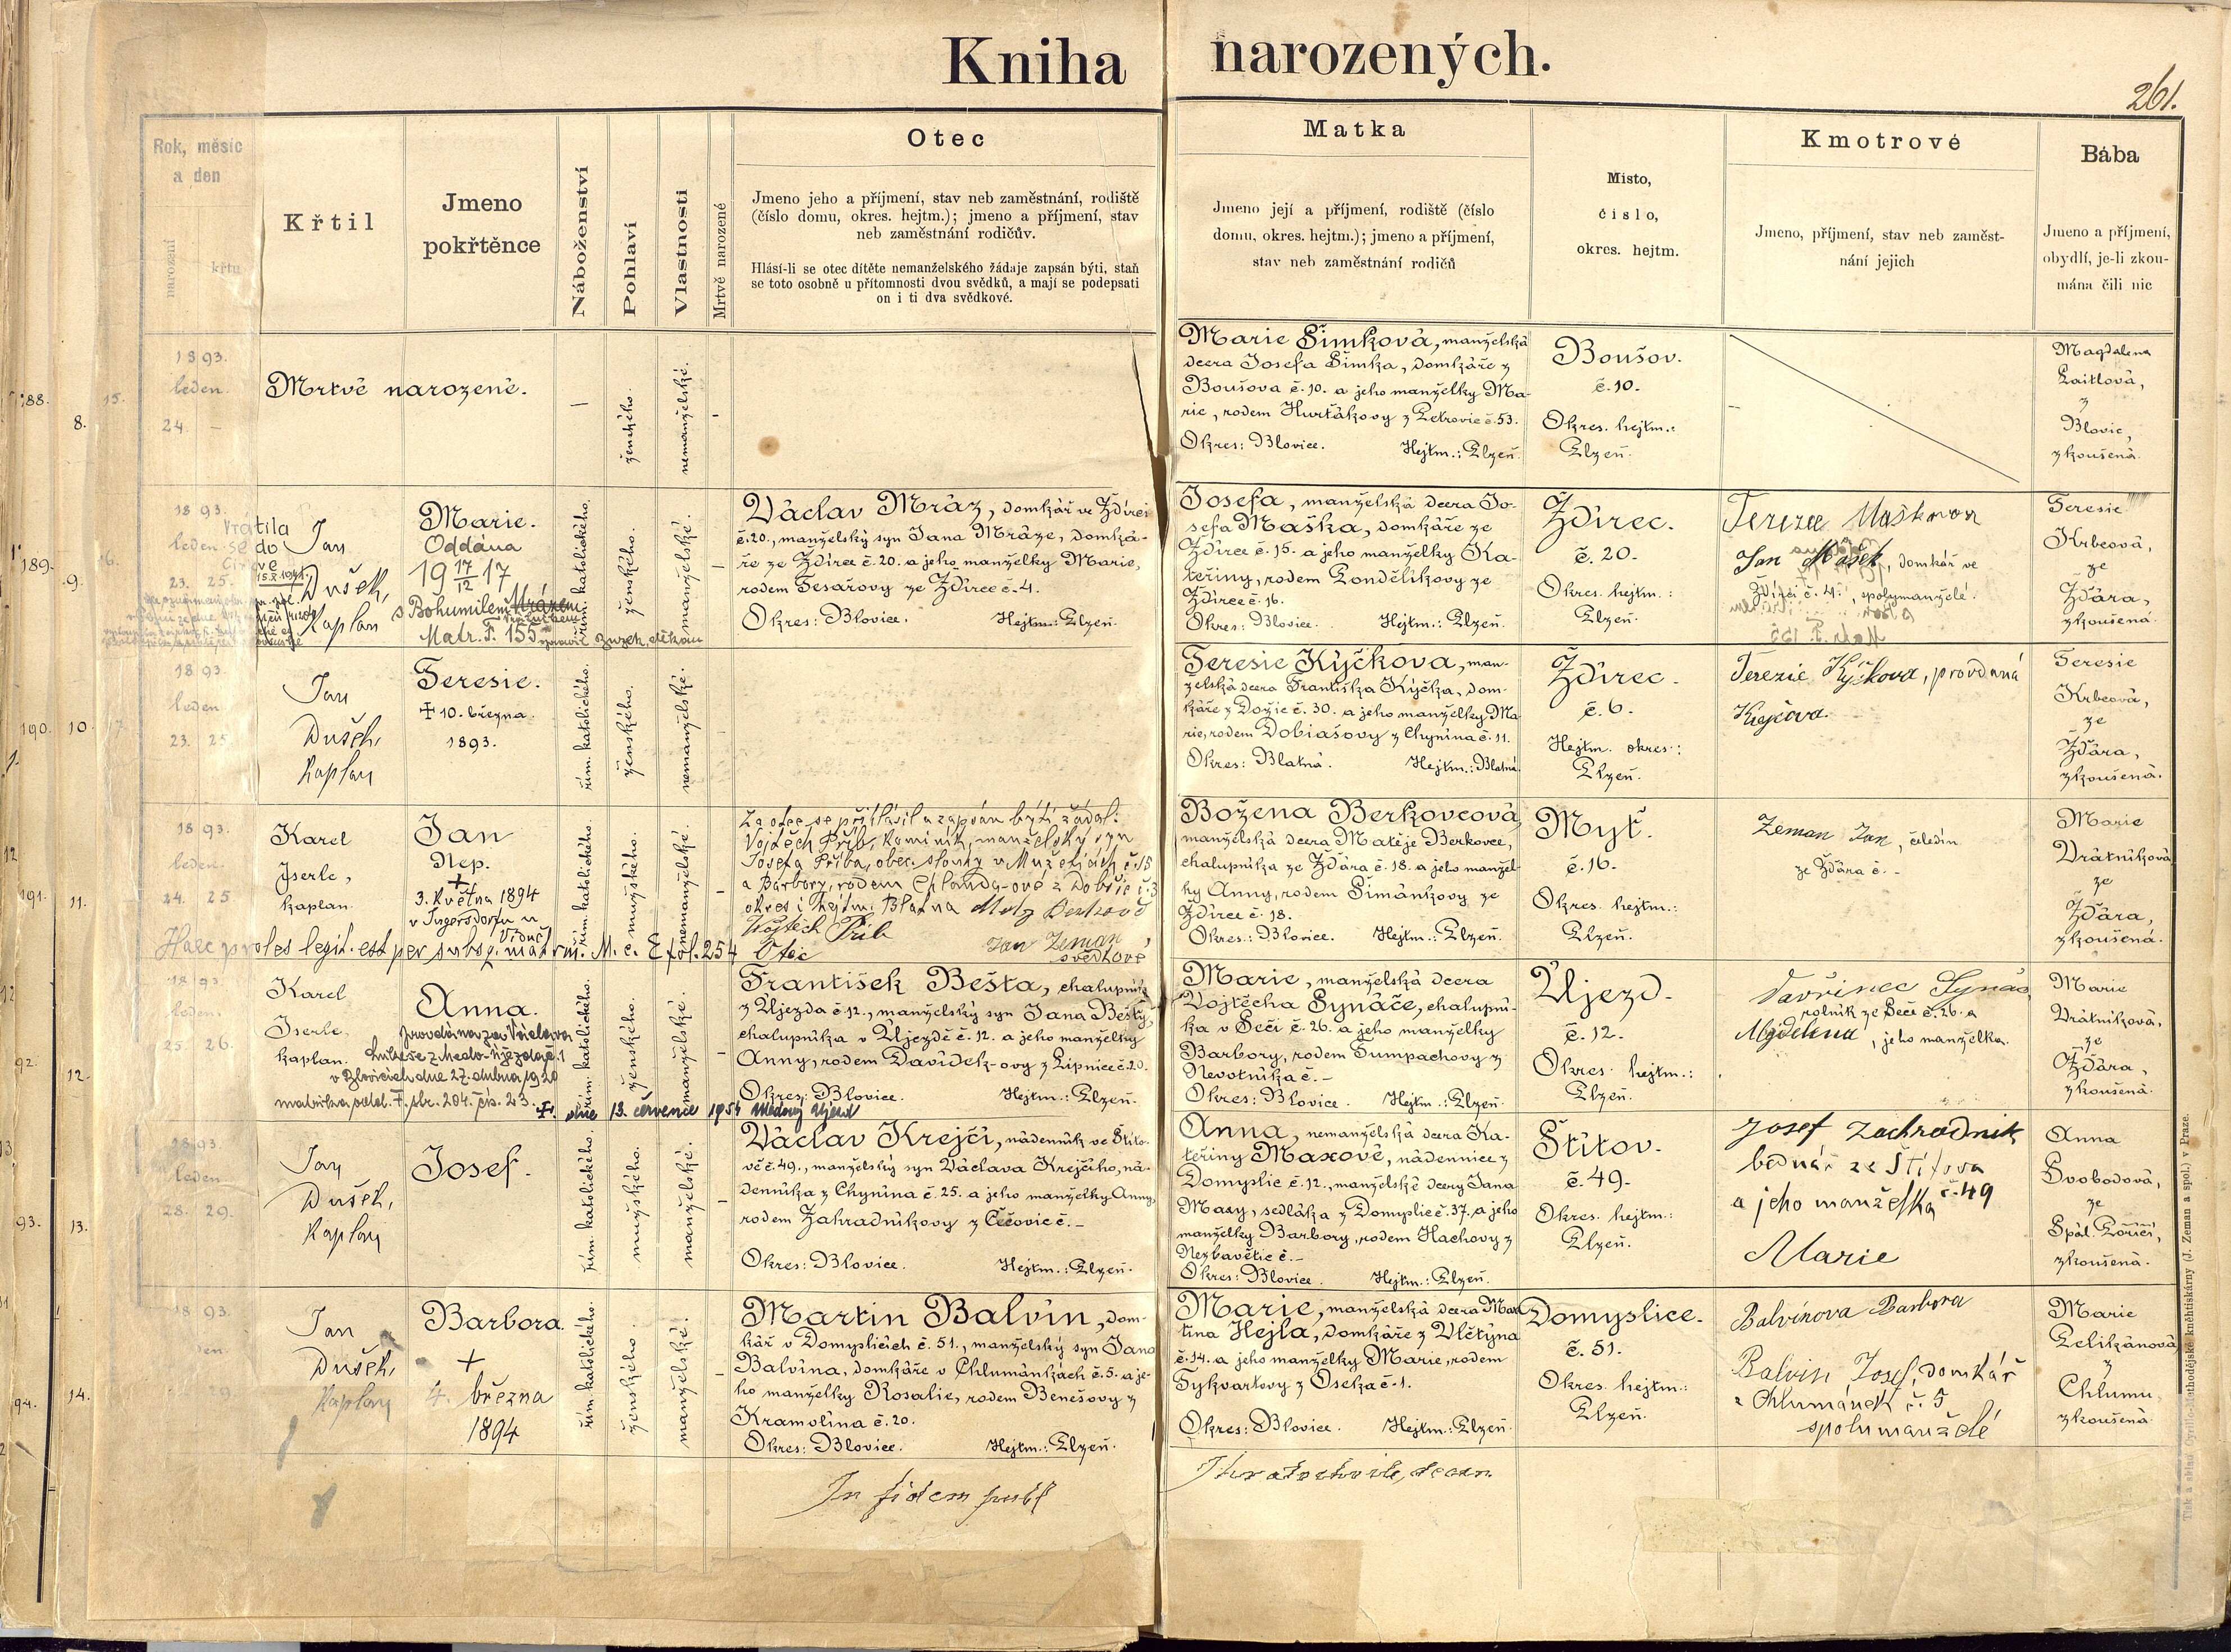 Kniha narozených.
261.
Rok, měsíc
a den
narození
křtu
Křtil
Jmeno
pokřtěnce
Náboženství
Pohlaví
Vlastnosti
Mrtvě narozené
Otec
Jmeno jeho a příjmení, stav neb zaměstnání, rodiště
(číslo domu, okres. hejtm.); jmeno a příjmení, stav
neb zaměstnání rodičův.
Hlásí-li se otec dítěte nemanželského žádaje zapsán býti, staň
se toto osobně u přítomnosti dvou svědků, a mají se podepsati
on i ti dva svědkové.
Matka
Jmeno její a příjmení, rodiště (číslo
domu, okres. hejtm.); jmeno a příjmení,
stav neb zaměstnání rodičů
Místo,
číslo,
okres. hejtm.
Kmotrové
Jmeno, příjmení, stav neb zaměst-
nání jejich
Bába
Jmeno a příjmení,
obydlí, je-li zkou-
mána čili nic
88.
8.
15.
1893.
leden
24. –
Mrtvě narozené.
–
ženského.
nemanželské.
-
Marie Šimková, manželská
dcera Josefa Šimka, domkáře z
Boušova č. 10. a jeho manželky Ma-
rie, rodem Hurťákovy z Petrovic č. 53.
Okres: Blovice. Hejtm.: Plzeň.
Boušov.
č. 10.
Okres. hejtm.:
Plzeň.
Magdalena
Laitlová,
z
Blovic,
zkoušená.
189.
9.
16.
1893.
leden
23. 25.
Vrátila
se do
Jan
Dušek,
Kaplan
Marie.
Oddána
19 17/12 17
s Bohumilem Mrázem
Matr. F. 155
řím. katolického.
ženského.
manželské.
Václav Mráz, domkář ve Ždírci
č. 20., manželský syn Jana Mráze, domká-
ře ze Ždírce č. 20. a jeho manželky Marie,
rodem Tesařovy ze Ždírce č. 4.
Okres: Blovice. Hejtm.: Plzeň.
Josefa, manželská dcera Jo-
sefa Maška, domkáře ze
Ždírce č. 15. a jeho manželky Ka-
teřiny, rodem Pondělíkovy ze
Ždírce č. 16.
Okres: Blovice. Hejtm.: Plzeň.
Ždírec.
č. 20.
Okres. hejtm.:
Plzeň.
Terezie Maškova
Jan Mašek, domkář ve
Ždírci č. 4., spolumanželé.
Teresie
Krbcová,
ze
Žďára,
zkoušená.
190.
10.
17.
1893.
leden
23. 25
Jan
Dušek,
Kaplan
Teresie.
+ 10. března
1893.
řím. katolického.
ženského.
nemanželské.
Teresie Kýčkova, man-
želská dcera Františka Kýčka, dom-
káře z Dožic č. 30. a jeho manželky Ma-
rie, rodem Dobiašovy z Chynína č. 11.
Okres: Blatná. Hejtm.: Blatná.
Ždírec.
č. 6.
Hejtm. okres.:
Plzeň.
Terezie Kýčkova, provdaná
Krejčova.
Teresie
Krbcová,
ze
Žďára,
zkoušená.
191.
11.
1893.
leden.
24. 25
Karel
Jserle,
kaplan.
Jan
Nep.
+
3. května 1894
řím. katolického.
mužského.
nemanželské.
Za otce se přihlásil a zapsán býti žádal:
Vojtěch Přib, kominík, manželský syn
Josefa Přiba, obec. slouhy v Mužeticích č. 15
a Barbory, rodem Chlanda-ové z Dobšic č. 3
okres i hejtm. Blatná
Vojtěch Přib
Otec
Jan Zeman
svědkové
Haec proles legit. est per subsq. matrim. M. c. E fol. 254
Božena Berkovcová,
manželská dcera Matěje Berkovce,
chalupníka ze Žďára č. 18. a jeho manžel-
ky Anny, rodem Šimánkovy ze
Ždírce č. 18.
Okres.: Blovice. Hejtm.: Plzeň.
Myť.
č. 16.
Okres. hejtm.:
Plzeň.
Zeman Jan, čeledín
ze Žďára č. -
Marie
Vrátníková,
ze
Žďára,
zkoušená.
92.
12.
1893.
leden.
25. 26.
Karel
Jserle
kaplan.
Anna.
v Blovicích dne 27. dubna 1920
matrika oddal. F. str. 204. čís. 23.
+ dne 13. července 1954 Medový Újezd
řím. katolického.
ženského.
manželské.
František Bešta, chalupník
z Újezda č. 12., manželský syn Jana Bešty,
chalupníka v Újezdě č. 12. a jeho manželky
Anny, rodem Davídek-ovy z Lipnice č. 20.
Okres: Blovice. Hejtm.: Plzeň.
Marie, manželská dcera
Vojtěcha Synáče, chalupní-
ka v Seči č. 26. a jeho manželky
Barbory, rodem Šumpachovy z
Nevotníka č. –
Okres: Blovice. Hejtm.: Plzeň.
Újezd.
č. 12.
Okres. hejtm.:
Plzeň.
Vavřinec Synáč
rolník ze Seči č. 26. a
Magdelena, jeho manželka.
Marie
Vrátníková,
ze
Žďára,
zkoušená.
93.
13.
1893.
leden
28. 29.
Jan
Dušek,
Kaplan
Josef.
řím. katolického.
mužského.
manželské.
Václav Krejčí, nádenník ve Štíto-
vě č. 49., manželský syn Václava Krejčího, ná-
denníka z Chynína č. 25. a jeho manželky Anny,
rodem Zahradníkovy z Čečovic č. –
Okres: Blovice. Hejtm.: Plzeň.
Anna, nemanželská dcera Ka-
teřiny Maxové, nádennice z
Domyslic č. 12., manželské dcery Jana
Maxy, sedláka z Domyslic č. 37. a jeho
manželky Barbory, rodem Hachovy z
Nezbavětic č. –
Okres: Blovice. Hejtm.: Plzeň.
Štítov.
č. 49.
Okres. hejtm.:
Plzeň.
Josef Zachradnik
bednář ze Štítova
č. 49
a jeho manželka
Marie
Anna
Svobodová,
ze
Spál. Poříčí,
zkoušená.
94.
14.
1893.
29.
Jan
Dušek,
Kaplan
Barbora.
+
4. března
1894
řím. katolického.
ženského.
manželské.
Martin Balvín, dom-
kář v Domyslicích č. 51., manželský syn Jana
Balvína, domkáře v Chlumánkách č. 5. a je-
ho manželky Rosalie, rodem Benešovy z
Kramolína č. 20.
Okres: Blovice. Hejtm.: Plzeň.
Marie, manželská dcera Mar-
tina Hejla, domkáře z Vlčtýna
č. 14. a jeho manželky Marie, rodem
Tykvartovy z Oseka č. 1.
Okres: Blovice. Hejtm.: Plzeň.
Domyslice.
č. 51.
Okres. hejtm.:
Plzeň.
Balvínova Barbora
Balvín Josef, domkář
z Chlumánek č. 5
spolumanželé
Marie
Pelikánová
z
Chlumu,
zkoušená.
In fidem publ
Tisk a sklad Cyrillo-Methodějské knihtiskárny (J. Zeman a spol.) v Praze.